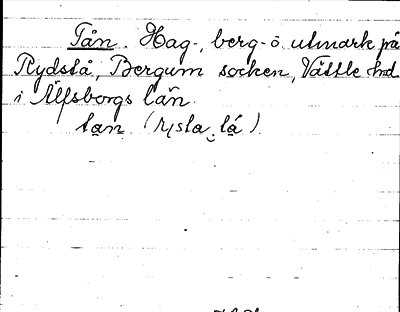 Tån. Hag-, berg- o. utmark på
Rydstå, Bergum socken, Vättle hd
i Älfsborgs län.